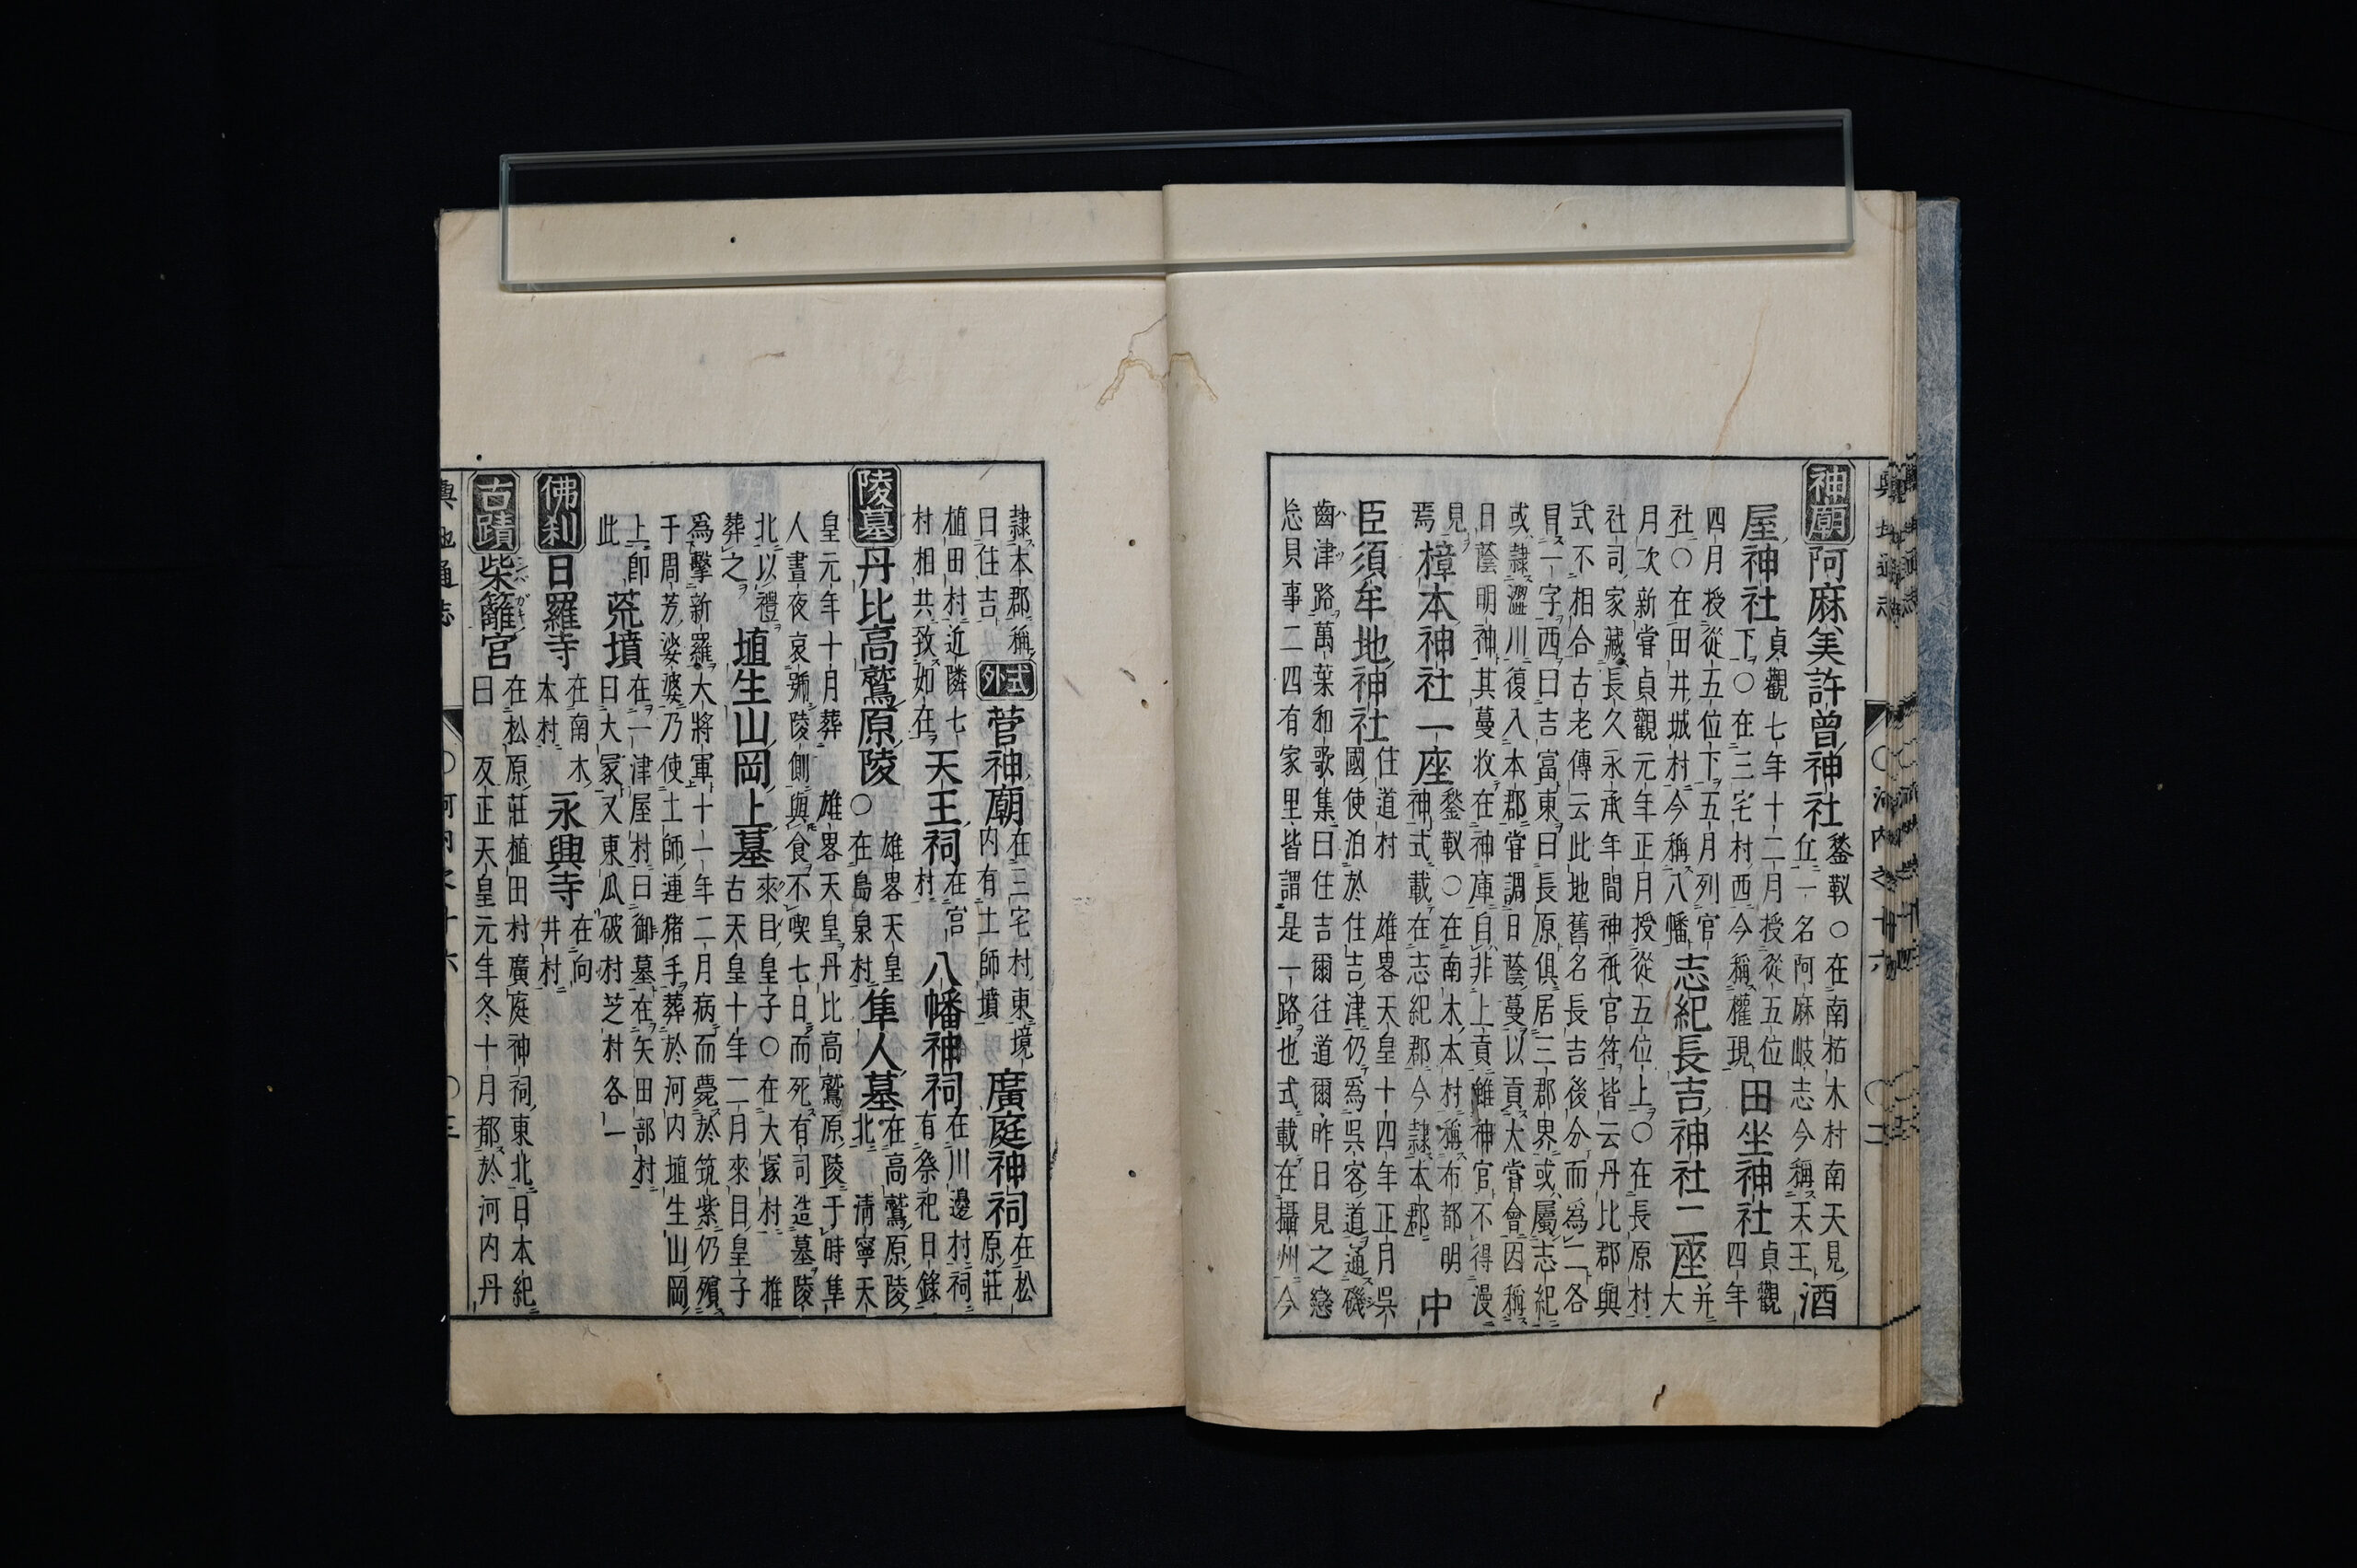 神廟 阿麻美許曾神社 鍫靫〇在南枯木村南天見丘一名阿麻岐志今稱天王 酒
屋神社 貞觀七年十二月授從五位下〇在三宅村西今稱權現 田坐神社 貞觀四年
四月授從五位下五月列官社〇在田井城村今稱八幡 志紀長吉神社二座 并大
月次新嘗貞觀元年正月授從五位上〇在長原村
社司家藏長久永承年間神祇官符皆云丹比郡與
式不相合古老傳云此地舊名長吉後分而為二各
冐一字西曰吉富東曰長原俱居三郡界或屬志紀
或隷澀川復入本郡嘗調日蔭蔓以貢大嘗會因稱
日蔭明神其蔓收在神庫自非上貢雖神官不得漫
見焉 樟本神社一座 鍫靫〇在南木本村稱布都明神式載在志紀郡今隷本郡 中
臣須牟地神社 住道村 雄畧天皇十四年正月吳國使泊於住吉津仍爲吳客道通磯
齒津路萬葉和歌集曰住吉爾往道爾昨日見之戀
忩貝事二四有家里皆謂是一路也式載在攝州今
輿地通志 〇河内之廿六 〇二
隷本郡稱曰住吉 式外 菅神廟 在三宅村東境内有土師墳 廣庭神祠 在松原莊
植田村近隣七村相共致如在 天王祠 在宮村 八幡神祠 在川邊村祠有祭祀日錄
陵墓 丹比高鷲原陵 雄畧天皇〇在島泉村 隼人墓 在高鷲原陵北 清寧天
皇元年十月葬 雄畧天皇丹比高鷲原陵于時隼
人晝夜哀號陵側與食不喫七日而死有司造墓陵
北以禮葬之 埴生山岡上墓 來目皇子〇在大塚村 推古天皇十年二月來目皇子
爲擊新羅大將軍十一年二月病而薨於筑紫仍殯
于周芳娑婆乃使土師連猪手葬於河内埴生山岡
上即此 荒墳 在一津屋村曰御墓在矢田部村曰大冢又東瓜破村芝村各一
佛刹 日羅寺 在南木本村 永興寺 在向井村
古蹟 柴籬宮 在松原莊植田村廣庭神祠東北日本紀曰 反正天皇元年冬十月都於河内丹